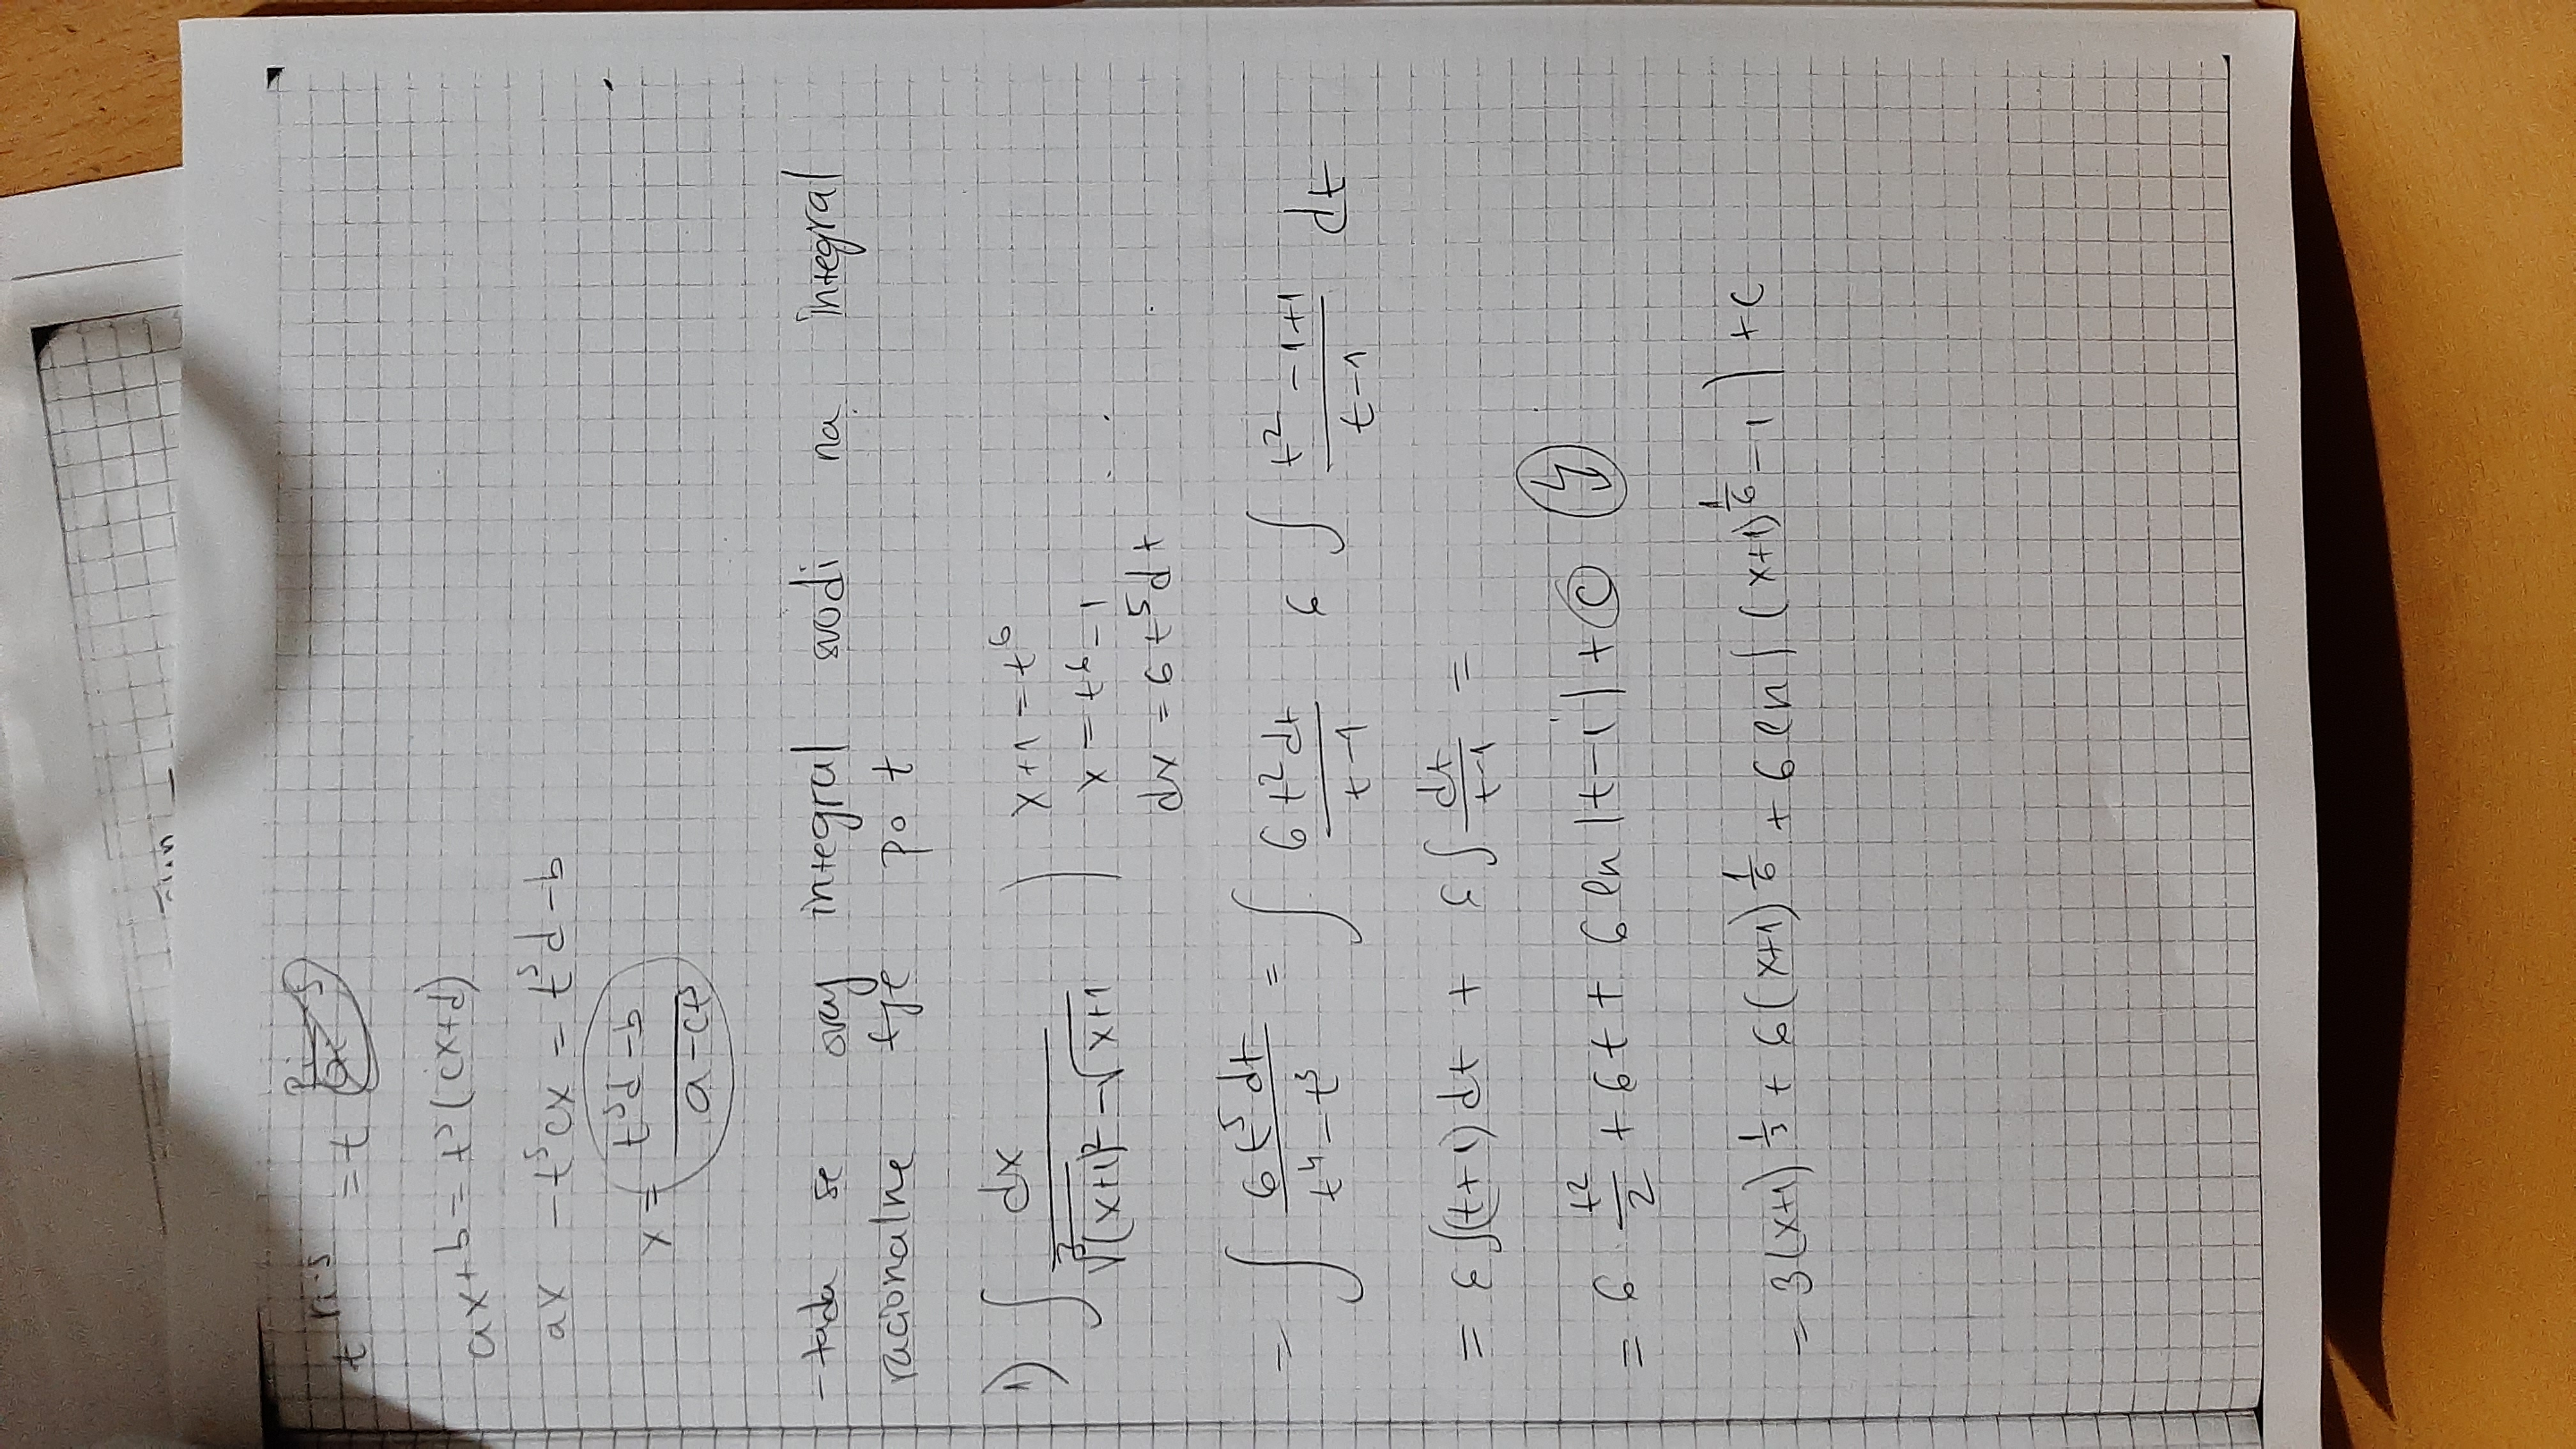 t = t
ax+b = t^s (cx+d)
ax - t^s cx = t^s d - b
x = \frac{t^s d - b}{a - ct^s}
-tada se ovaj integral svodi na integral
racionalne fje po t
1) ∫ \frac{dx}{\sqrt[3]{(x+1)^2} - \sqrt{x+1}} ) x+1 = t^6
x = t^6 - 1
dx = 6t^5 dt
= ∫ \frac{6t^5 dt}{t^4 - t^3} = ∫ \frac{6t^2 dt}{t-1} 6 ∫ \frac{t^2 - 1 + 1}{t-1} dt
= 6 ∫(t+1)dt + 6 ∫ \frac{dt}{t-1} =
= 6 · \frac{t^2}{2} + 6t + 6 ln |t-1| + C
= 3(x+1)^{\frac{1}{3}} + 6(x+1)^{\frac{1}{6}} + 6 ln | (x+1)^{\frac{1}{6}} - 1 | + C